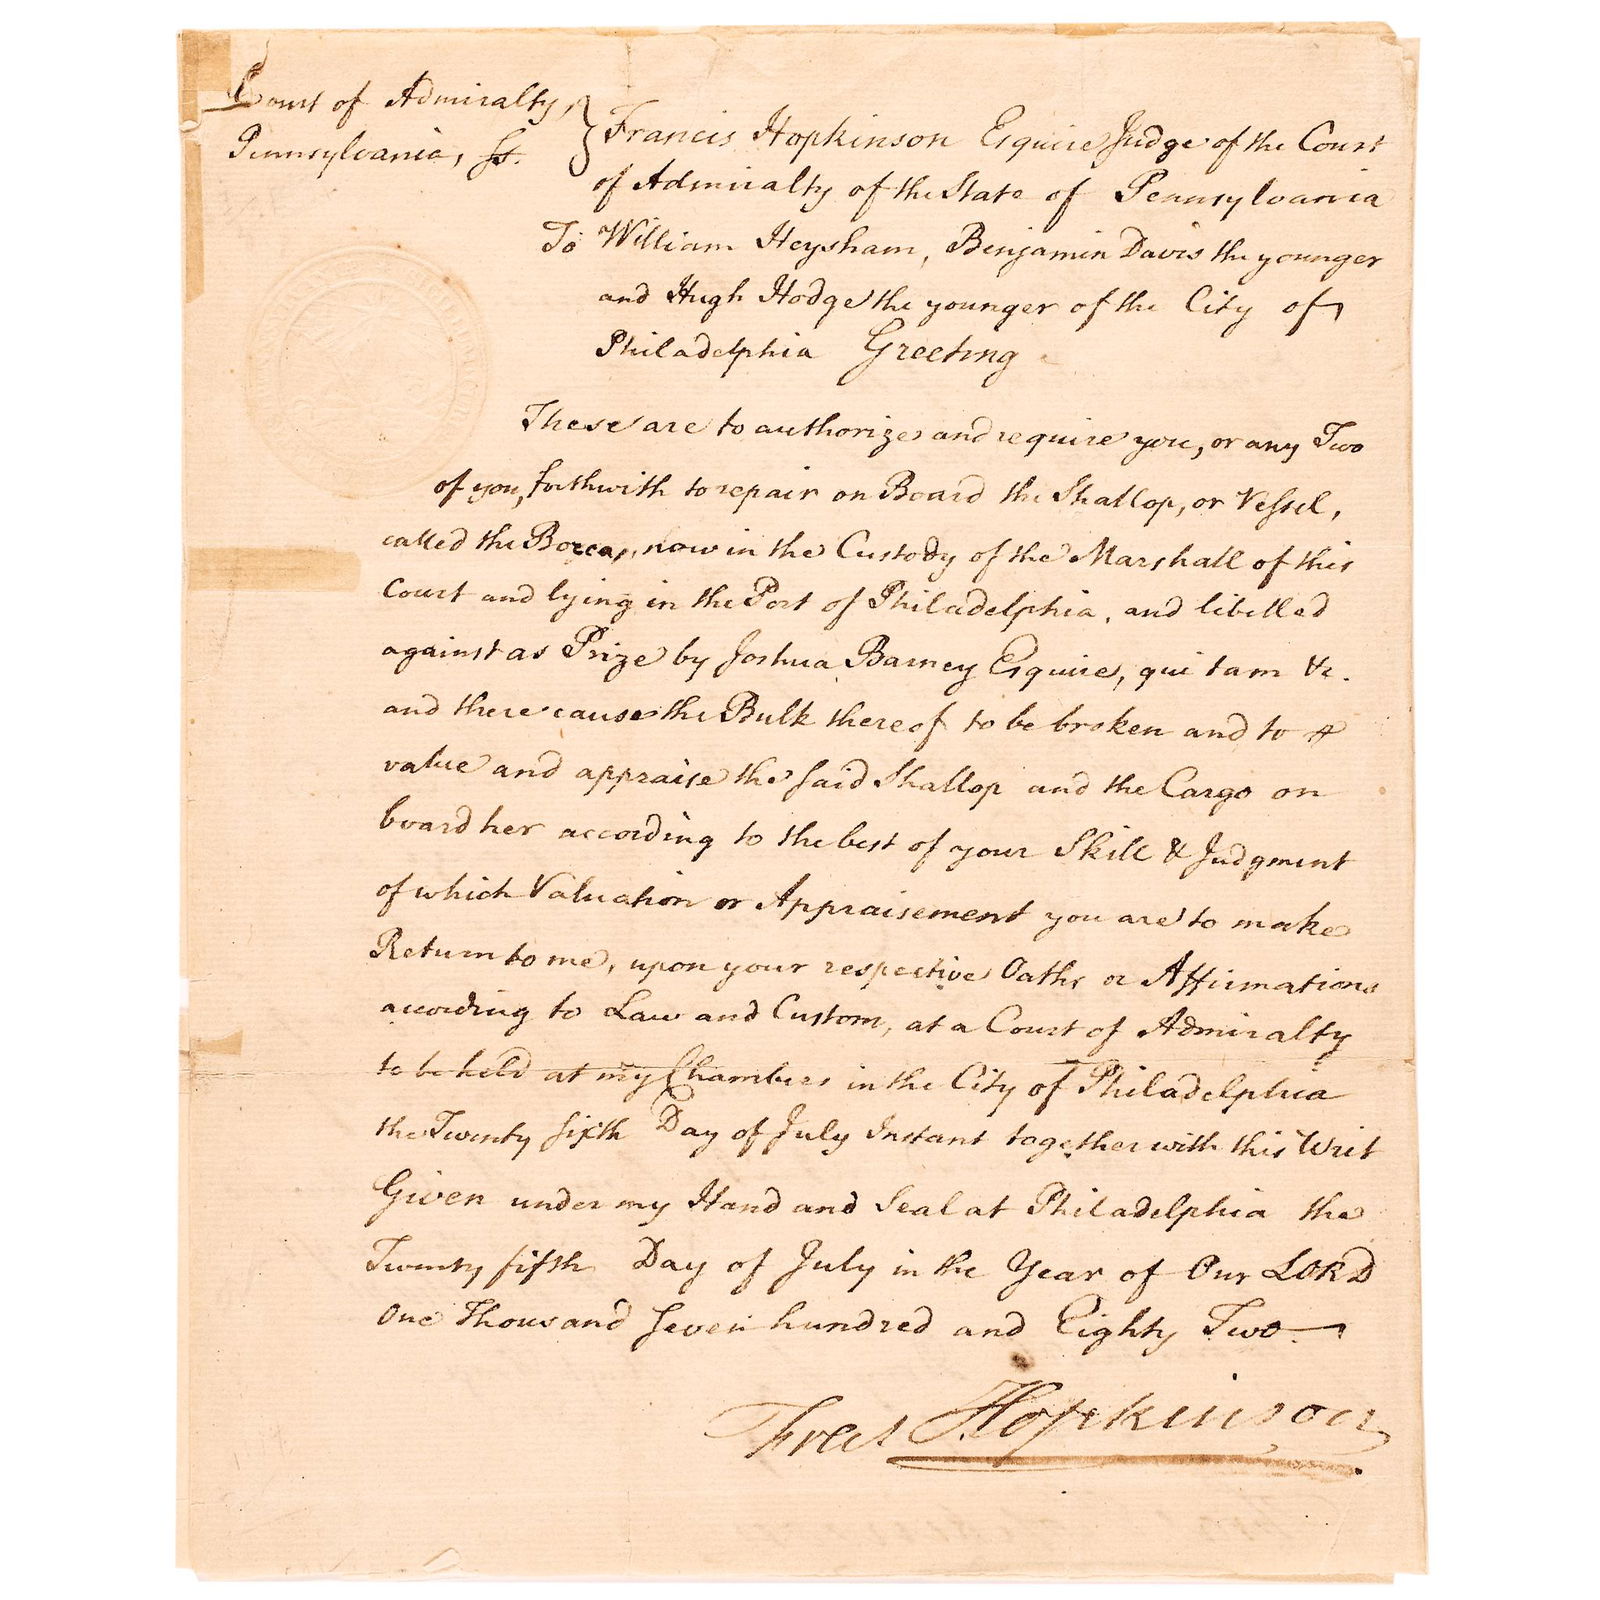 Court of Admiralty,
Pennsylvania, ss.
Francis Hopkinson Esquire Judge of the Court
of Admiralty of the State of Pennsylvania
To William Heysham, Benjamin Davis the younger
and Hugh Hodge the younger of the City of
Philadelphia Greeting
These are to authorize and require you, or any Two
of you, forthwith to repair on Board the Shallop, or Vessel,
called the now in the Custody of the Marshall of this
Court and lying in the Port of Philadelphia, and libelled
against as Prize by Joshua Barney Esquire, qui tam &c.
and there cause the Bulk thereof to be broken and to
value and appraise the said Shallop and the Cargo on
board her according to the best of your Skill & Judgment
of which Valuation or Appraisement you are to make
Return to me, upon your respective Oaths or Affirmations
according to Law and Custom, at a Court of Admiralty
to be held at my Chambers in the City of Philadelphia
the Twenty sixth Day of July Instant together with this Writ
Given under my Hand and Seal at Philadelphia the
Twenty fifth Day of July in the Year of Our LORD
One Thousand Seven hundred and Eighty Two.
Fras Hopkinson